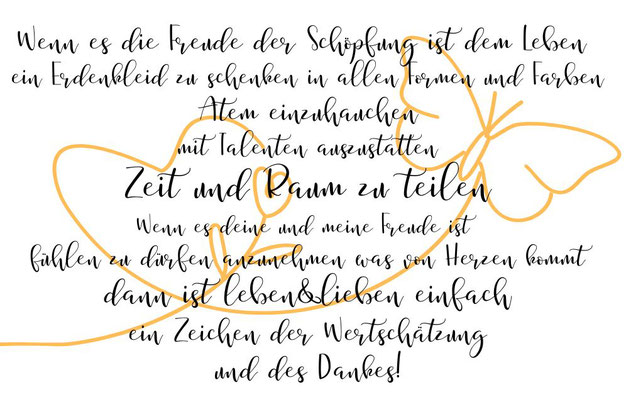 Wenn es die Freude der Schöpfung ist dem Leben
ein Erdenkleid zu schenken in allen Formen und Farben
Atem einzuhauchen
mit Talenten auszustatten
Zeit und Raum zu teilen
Wenn es deine und meine Freude ist
fühlen zu dürfen anzunehmen was von Herzen kommt
dann ist leben&lieben einfach
ein Zeichen der Wertschätzung
und des Dankes!